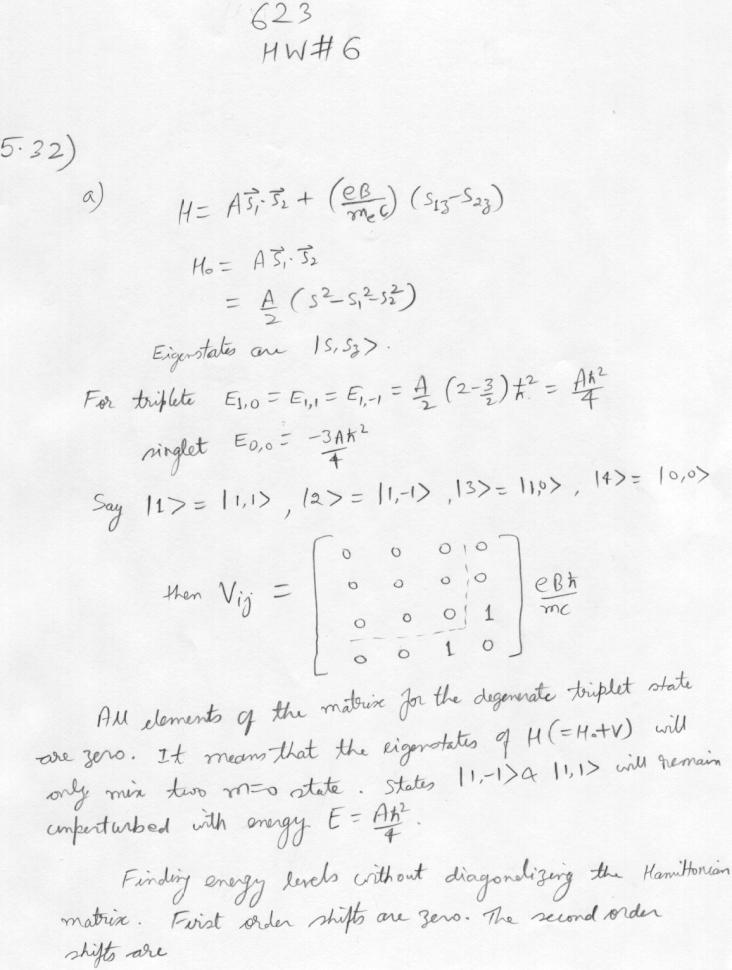 623
HW#6
5.32)
a) H = A S⃗₁·S⃗₂ + (eB/mₑc) (S₁z - S₂z)
H₀ = A S⃗₁·S⃗₂
= A/2 (S² - S₁² - S₂²)
Eigenstates are |S, Sz>.
For triplete E₁,₀ = E₁,₁ = E₁,₋₁ = A/2 (2 - 3/2) ħ² = Aħ²/4
singlet E₀,₀ = -3Aħ²/4
Say |1> = |1,1>, |2> = |1,-1>, |3> = |1,0>, |4> = |0,0>
then Vij = [
0 0 0 0
0 0 0 0
0 0 0 1
0 0 1 0
] eBħ/mc
All elements of the matrix for the degenerate triplet state
are zero. It means that the eigenstates of H (=H₀+V) will
only mix two m=0 state. States |1,-1> & |1,1> will remain
unperturbed with energy E = Aħ²/4.
Finding energy levels without diagonalizing the Hamiltonian
matrix. First order shifts are zero. The second order
shifts are